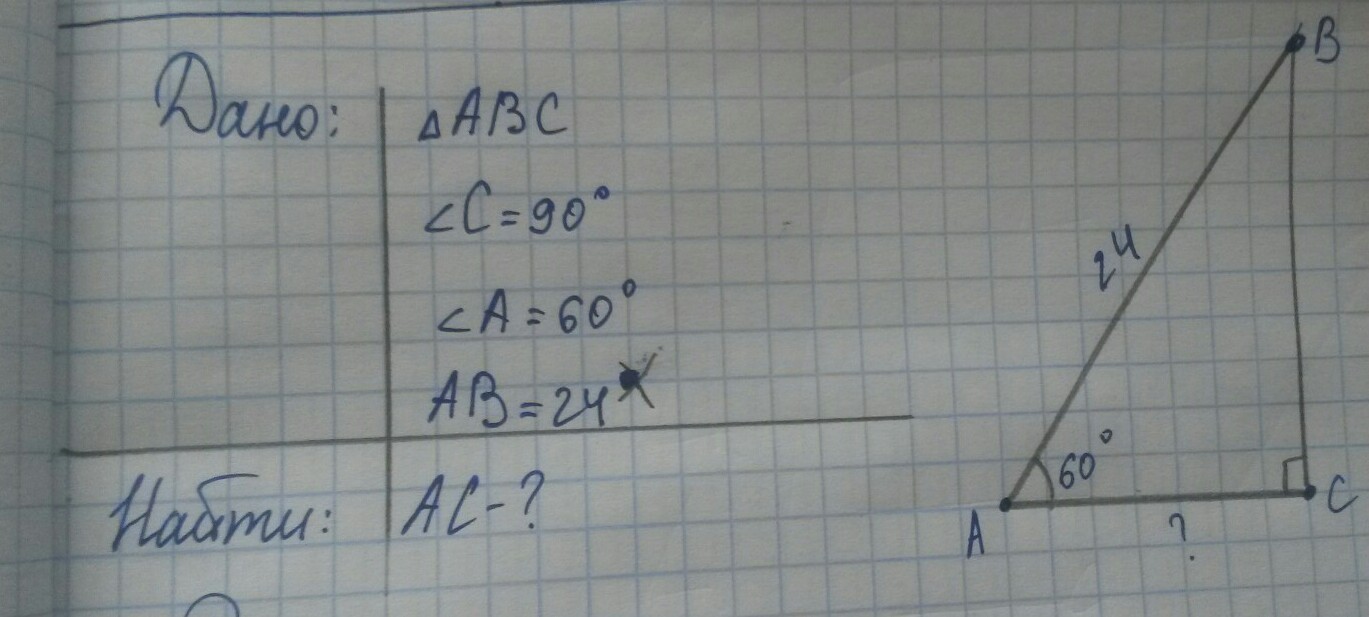 Дано: ΔABC
∠C=90°
∠A=60°
AB=24
Найти: AC-?
B
24
60°
A
?
C